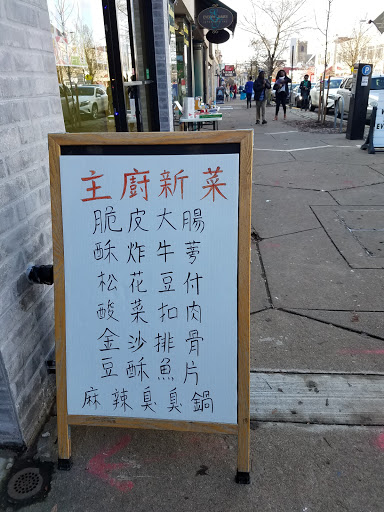 主廚新菜
脆皮大腸
酥炸牛蒡
松花豆付
酸菜扣肉
金沙排骨
豆酥魚片
麻辣臭臭鍋